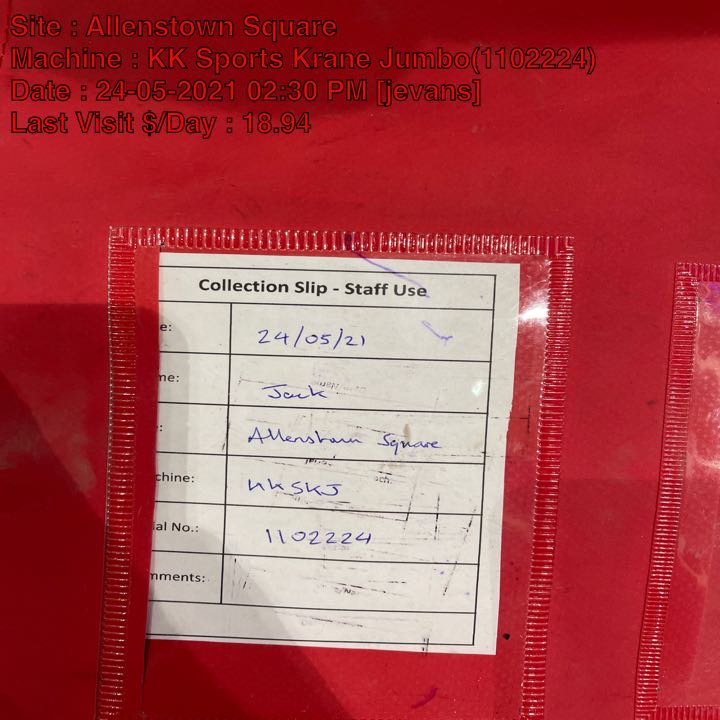 Site : Allenstown Square
Machine : KK Sports Krane Jumbo(1102224)
Date : 24-05-2021 02:30 PM [jevans]
Last Visit $/Day : 18.94
Collection Slip - Staff Use
e: 24/05/21
me: Jack
: Allenstown Square
chine: KKSKJ
ial No.: 1102224
mments: